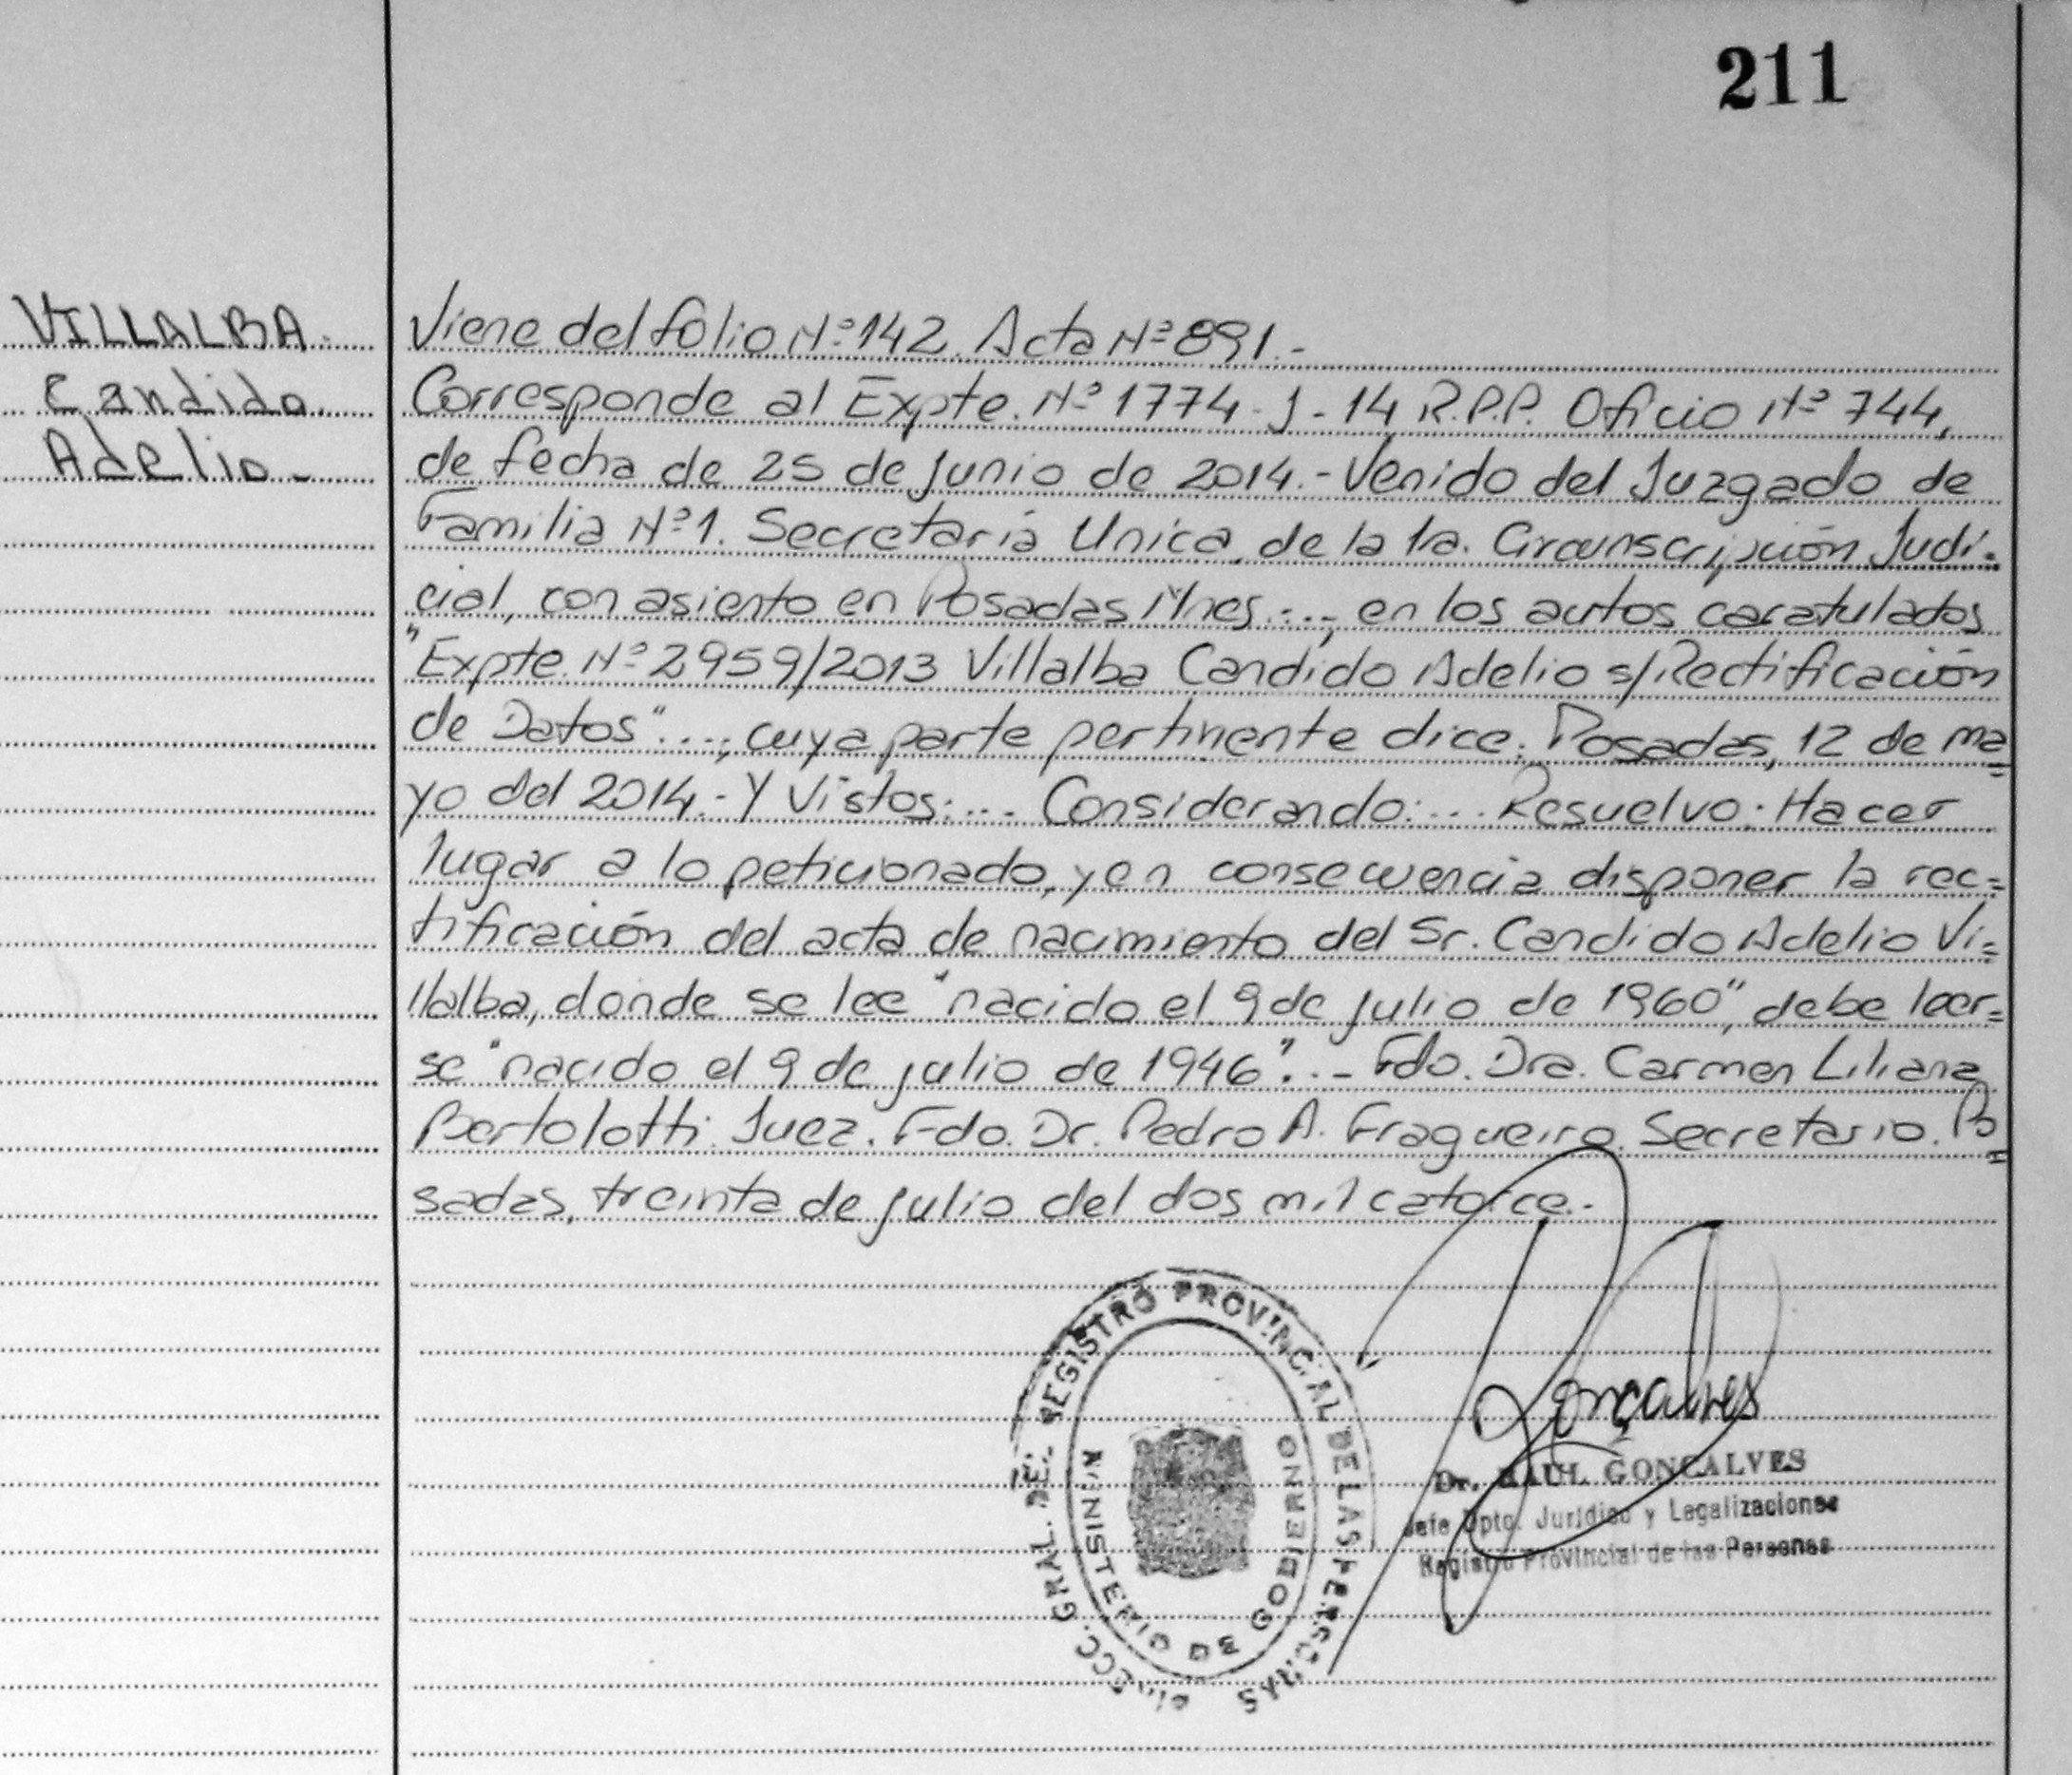 211
VILLALBA.
Candido.
Adelio._
Viene del folio Nº 142. Acta Nº 891.-
Corresponde al Expte. Nº 1774-J-14 R.P.P. Oficio Nº 744,
de fecha de 25 de junio de 2014.- Venido del Juzgado de
Familia Nº 1. Secretaría Unica, de la 1a. Circunscripción Judi-
cial, con asiento en Posadas Mnes...., en los autos caratulados
"Expte. Nº 2959/2013 Villalba Candido Adelio s/Rectificación
de Datos"...., cuya parte pertinente dice: Posadas, 12 de ma=
yo del 2014.- Y Vistos:... Considerando:... Resuelvo: Hacer
lugar a lo peticionado, y en consecuencia disponer la rec=
tificación del acta de nacimiento del Sr. Candido Adelio Vi=
llalba, donde se lee "nacido el 9 de julio de 1960", debe leer=
se "nacido el 9 de julio de 1946".._ Fdo. Dra. Carmen Liliana
Bertolotti. Juez. Fdo. Dr. Pedro A. Fragueiro. Secretario. Po=
sadas, treinta de julio del dos mil catorce.-
DIRECC. GRAL. DEL REGISTRO PROVINCIAL DE LAS PERSONAS
MINISTERIO DE GOBIERNO
Gonçalves
Dr. RAUL GONCALVES
Jefe Dpto. Jurídico y Legalizaciones
Registro Provincial de las Personas